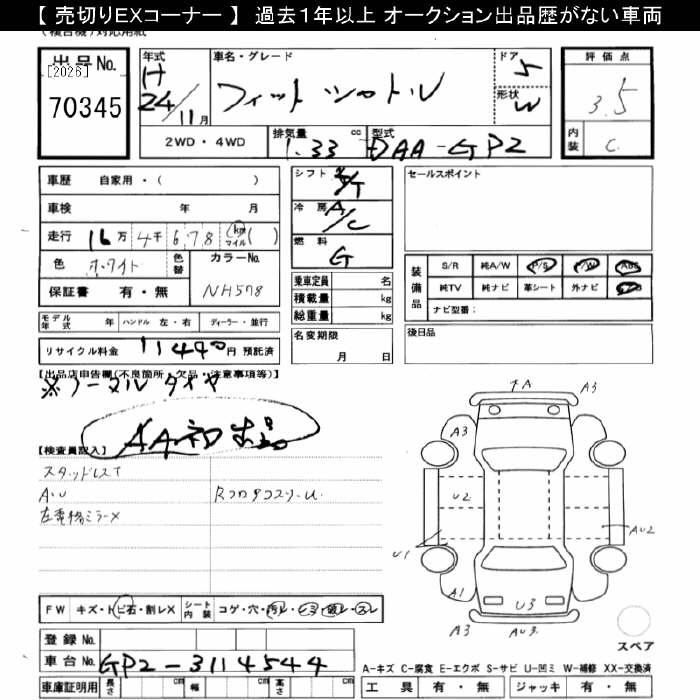 【 売切りEXコーナー 】 過去1年以上 オークション出品歴がない車両
出品No.
[2026]
70345
年式
H
24/11月
車名・グレード
フィット シャトル
ドア
5
形状
W
2WD ・ 4WD
排気量
1.33 cc
型式
DAA-GP2
評価点
3.5
内装
C
車歴 自家用・( )
車検 年 月
走行 16万 4千 678 km マイル ( )
色 ホワイト 色替
カラーNo.
NH578
保証書 有・無
シフト
冷房 A/C
燃料 G
乗車定員 名
積載量 kg
総重量 kg
名変期限
月 日
セールスポイント
装備品
S/R 純A/W P/S P/W ABS
純TV 純ナビ 革シート 外ナビ
ナビ型番：
後日品
モデル年式 年 ハンドル 左・右 ディーラー・並行
リサイクル料金 11490円 預託済
【出品店申告欄(不良箇所・欠品・注意事項等)】
※ノーマルタイヤ
AA初出品
【検査員記入】
スタッドレスT
A・U
左電格ミラーX
FW キズ・トビ石・割レX シート内装 コゲ・穴・汚レ・スレ
登録No.
車台No. GP2-3114544
車庫証明用 長さ cm 幅 cm 高さ cm
A A3
A3
U2
AU2
U1
A1
U3
A3
スペア
A-キズ C-腐食 E-エクボ S-サビ U-凹ミ W-補修 XX-交換済
工具 有・無 ジャッキ 有・無